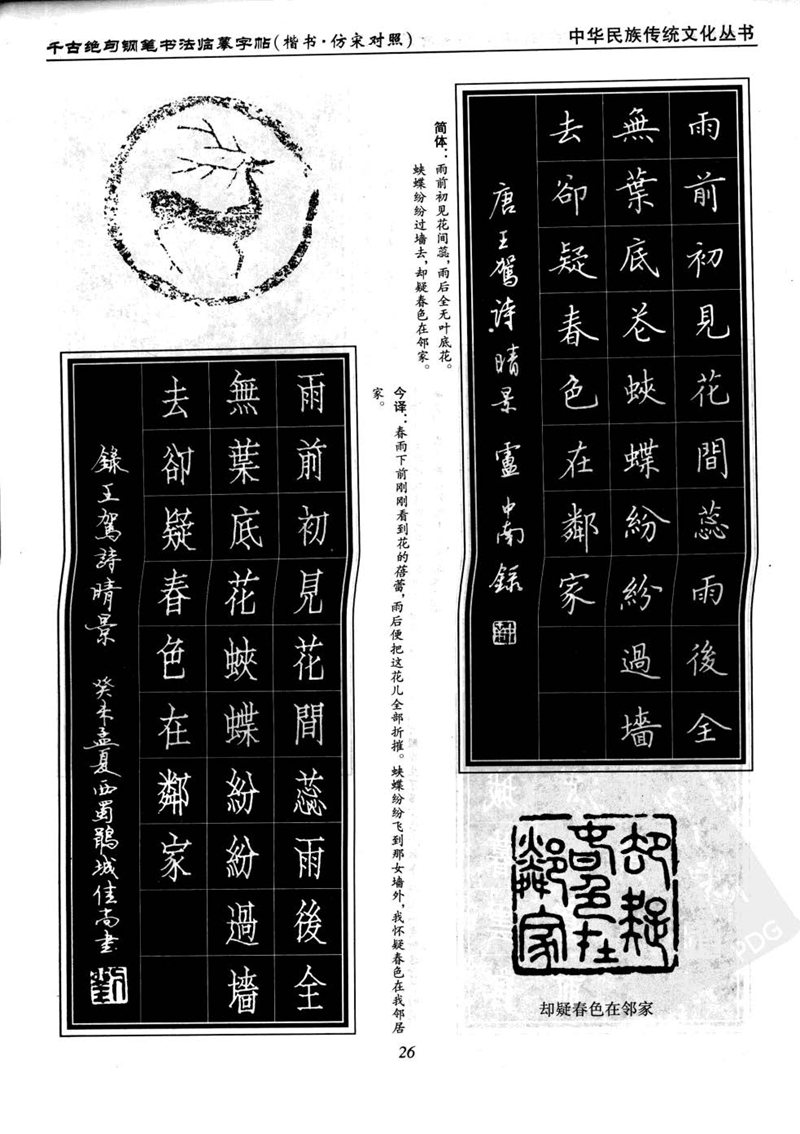 千古绝句钢笔书法临摹字帖(楷书·仿宋对照)
中华民族传统文化丛书
雨前初見花間蕊雨後全
無葉底花蛺蝶紛紛過墻
去卻疑春色在鄰家
唐王駕詩晴景 盧中南錄
简体：雨前初见花间蕊，雨后全无叶底花。
蛱蝶纷纷过墙去，却疑春色在邻家。
今译：春雨下前刚刚看到花的蓓蕾，雨后便把这花儿全部折摧。蛱蝶纷纷飞到那女墙外，我怀疑春色在我邻居
家。
雨前初見花間蕊雨後全
無葉底花蛺蝶紛紛過墻
去卻疑春色在鄰家
錄王駕詩晴景 癸未孟夏西蜀鵑城佳尚書
劉
却疑
春色在
鄰家
却疑春色在邻家
26
PDG